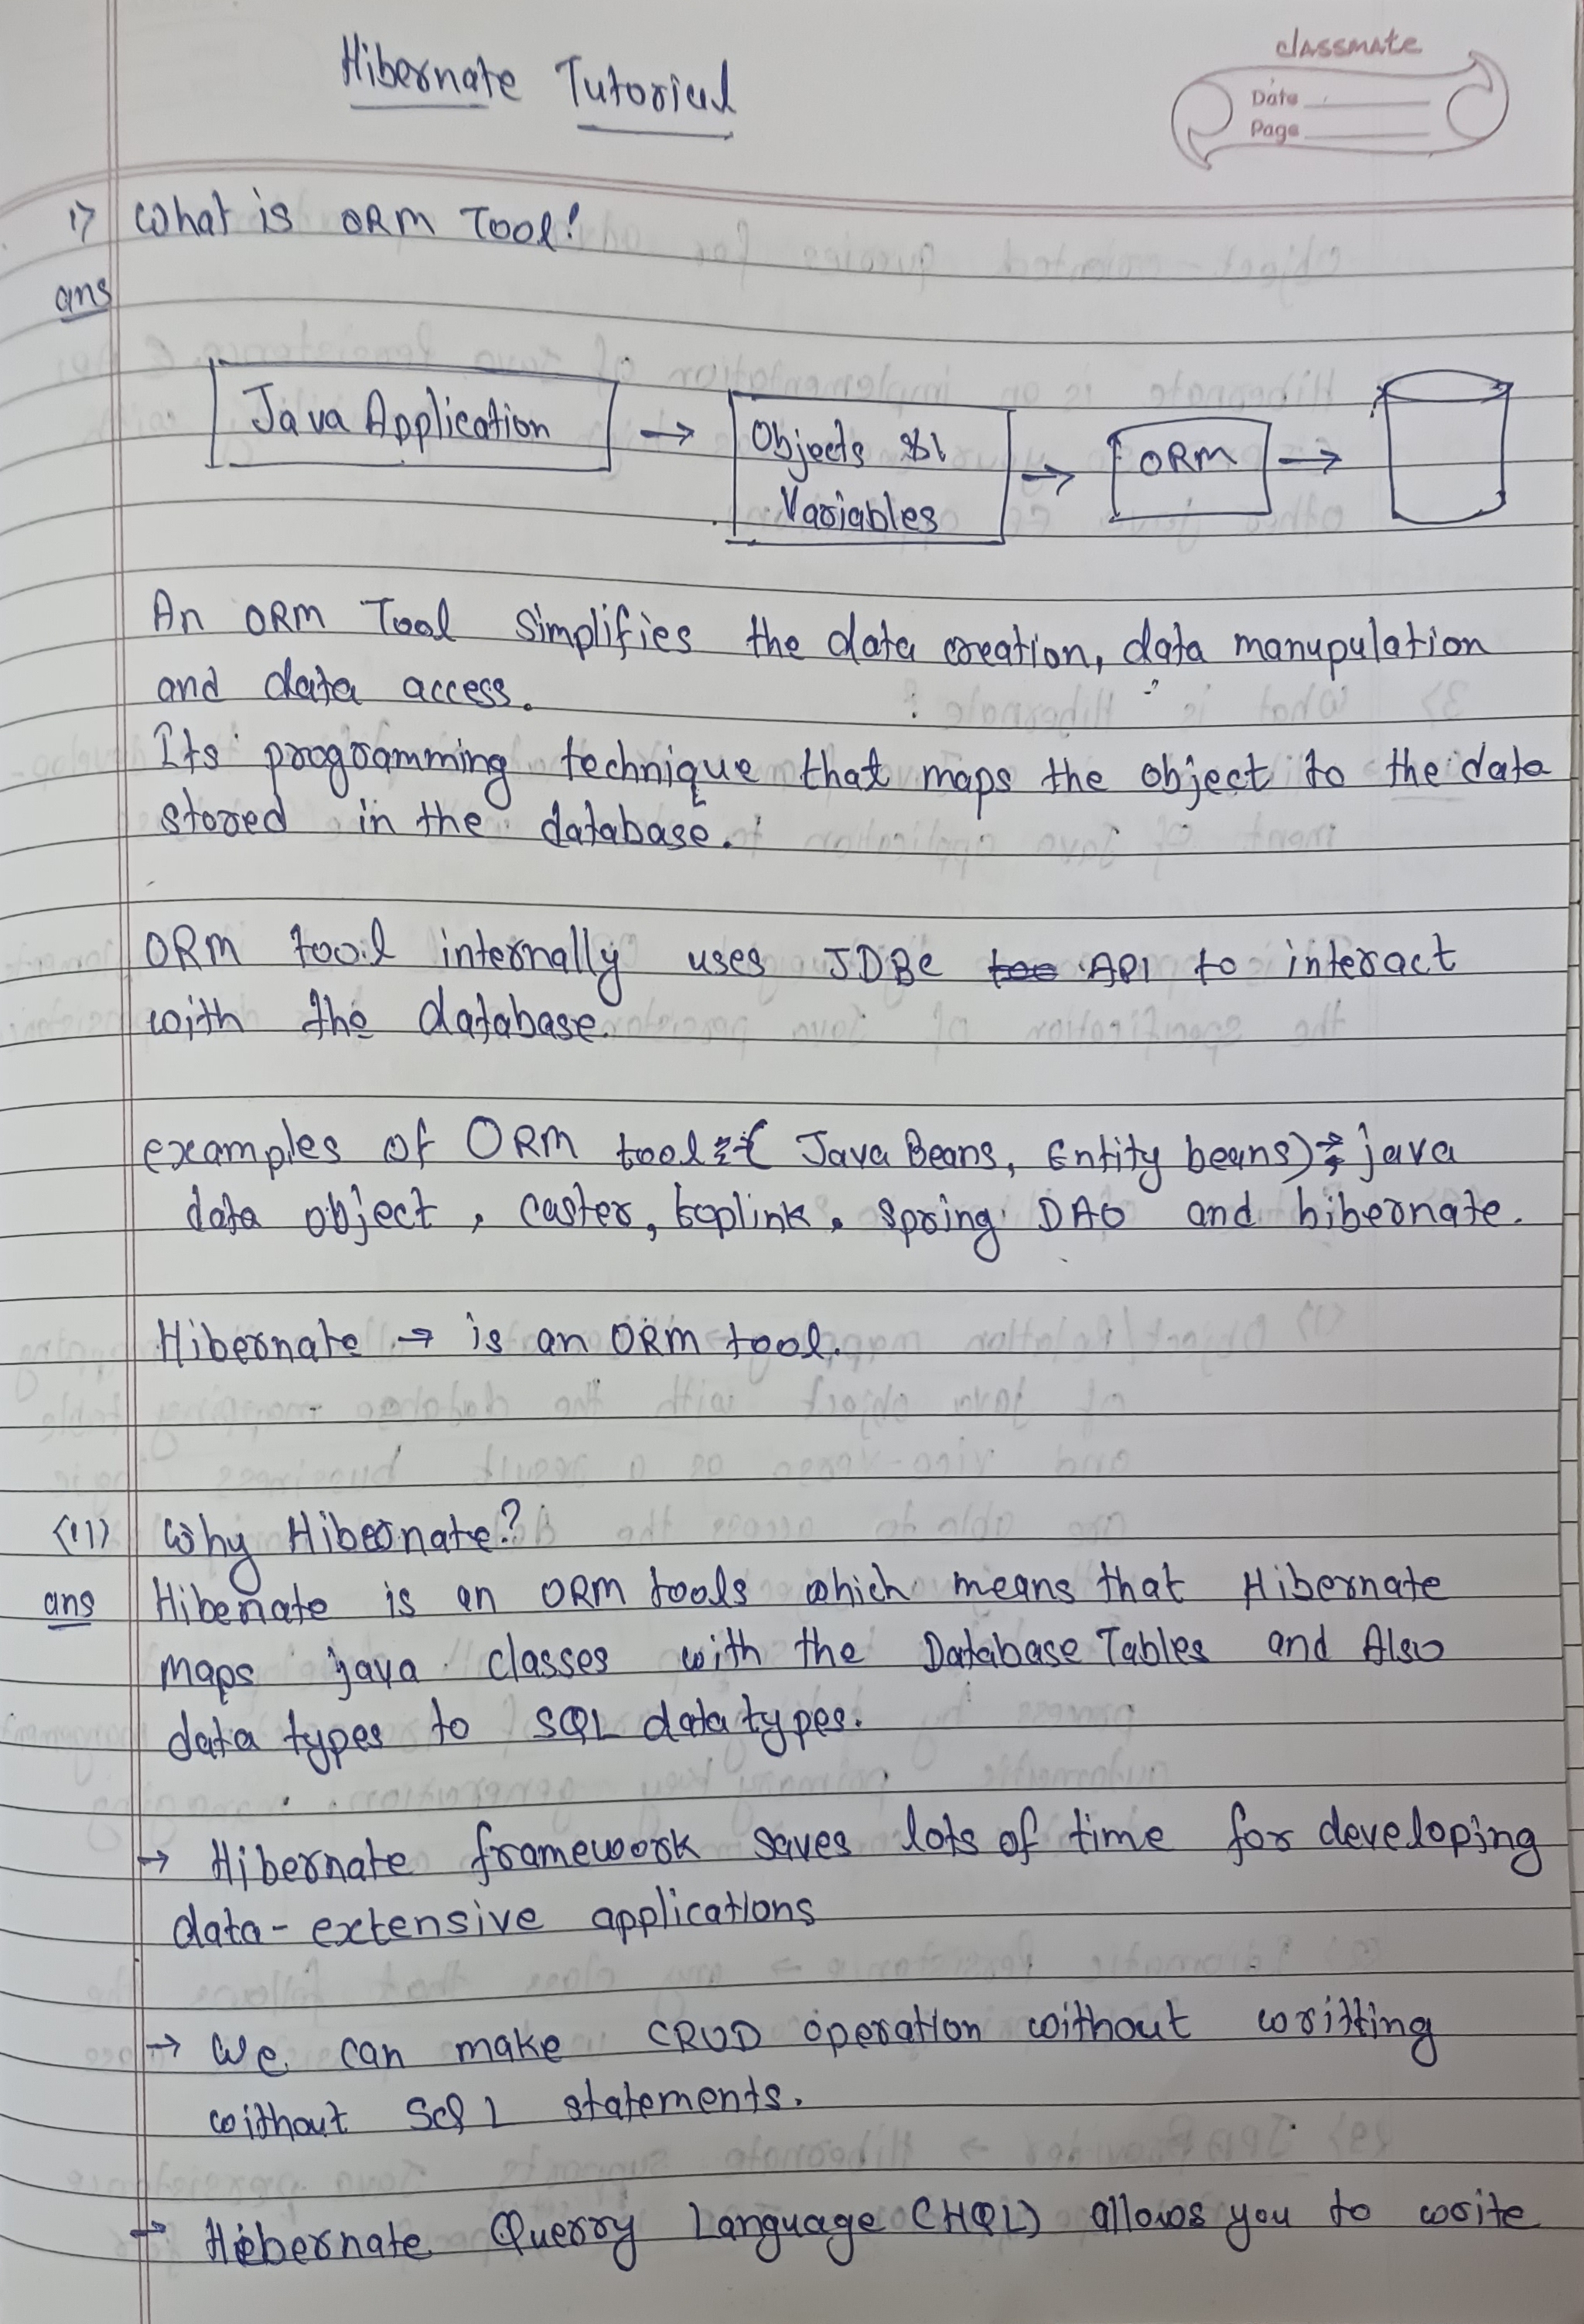 Hibernate Tutorial
classmate
Date
Page
1) What is ORM Tool?
ans
Java Application → Objects &
Variables → ORM →
An ORM Tool simplifies the data creation, data manupulation
and data access.
Its programming technique that maps the object to the data
stored in the database.
ORM tool internally uses JDBC API to interact
with the database.
examples of ORM tool :- ( Java Beans, Entity beans) java
data object, caster, toplink, spring DAO and hibernate.
Hibernate → is an ORM tool.
(11) Why Hibernate?
ans Hibernate is an ORM tools which means that Hibernate
maps java classes with the Database Tables and Also
data types to SQL data types.
→ Hibernate framework saves lots of time for developing
data-extensive applications
→ We can make CRUD operation without writting
without SQL statements.
→ Hibernate Querry Language (HQL) allows you to write